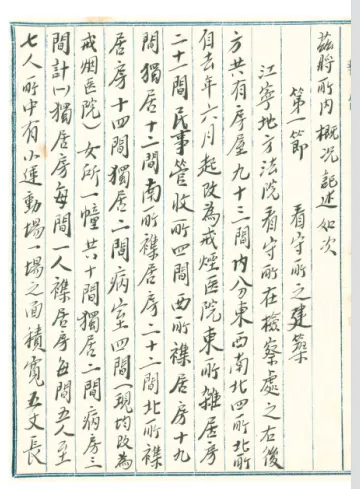 茲將所内概况記述如次
第一節　看守所之建築
江寧地方法院看守所在檢察處之右後
方共有房屋九十三間内分東西南北四所北所
自去年六月起改為戒煙医院東所雜居房
二十一間民事管收所四間西所襍居房十九
間獨居十二間南所襍居房二十二間北所襍
居房十四間獨居二間病室四間（現均改為
戒烟医院）女所一幢共十間獨居二間病房三
間計（一）獨居房每間一人襍居房每間五人至
七人所中有小運動場一場之面積寬五丈長